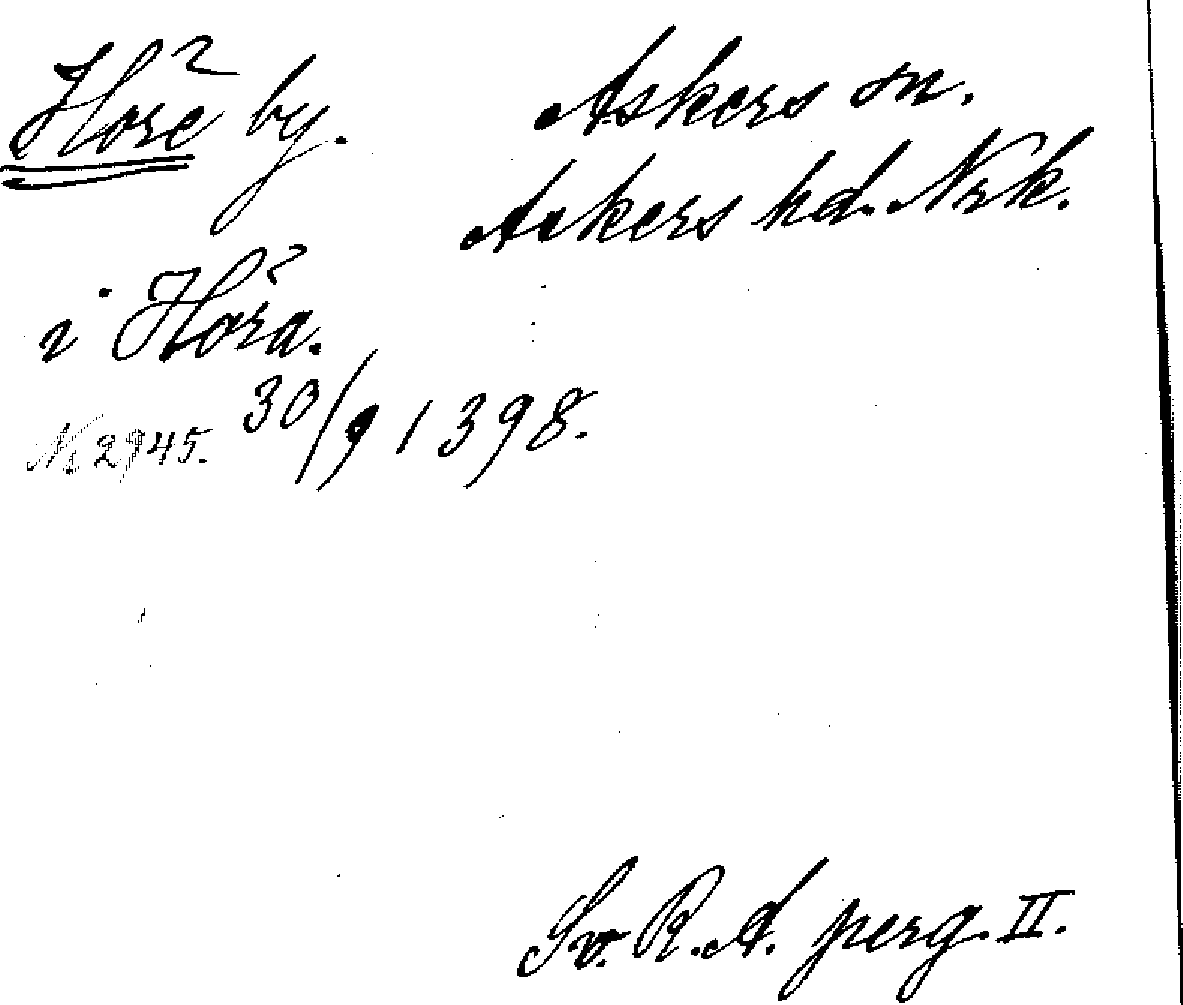 Höre by. Askers sn.
Askers hd. Nrk.
i Höra.
№ 2945. 30/9 1398.
Sv. R. A. perg. II.